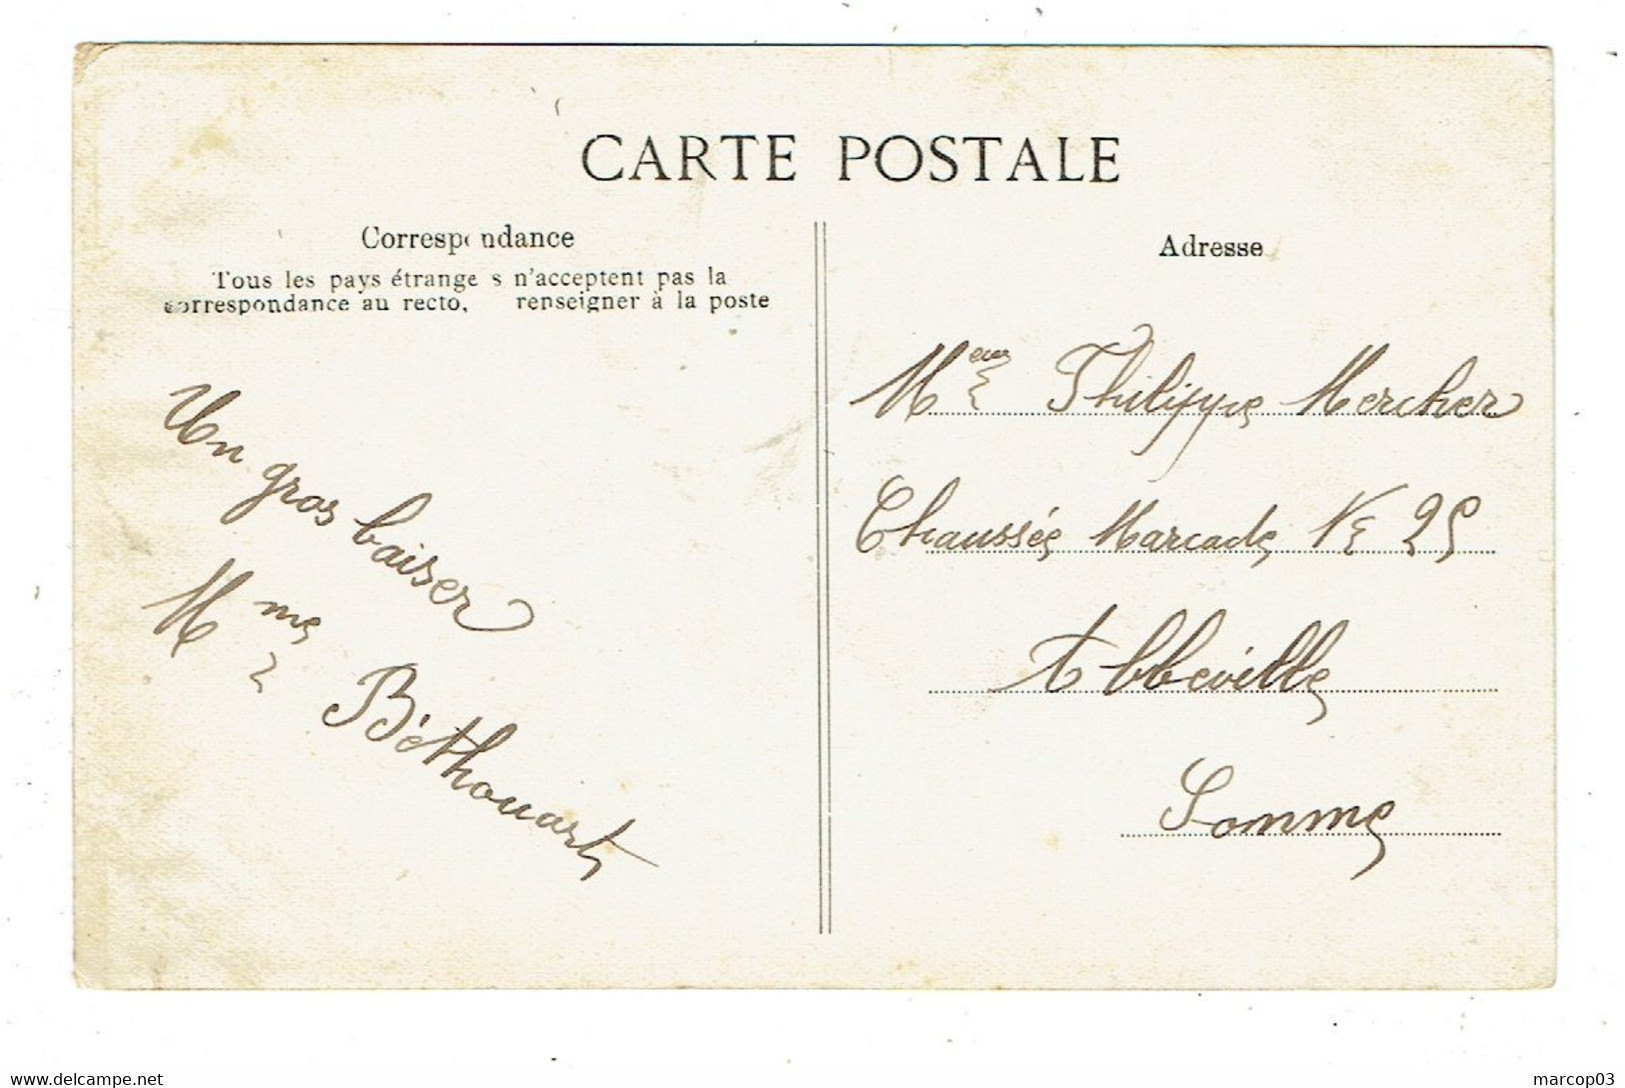 CARTE POSTALE
Correspondance
Tous les pays étrangers n'acceptent pas la
correspondance au recto, renseigner à la poste
Un gros baiser
Mme Béthouart
Adresse
Philippe Mercher
Chaussée Marcade No 25
Abbeville
Somme
www.delcampe.net
marcop03